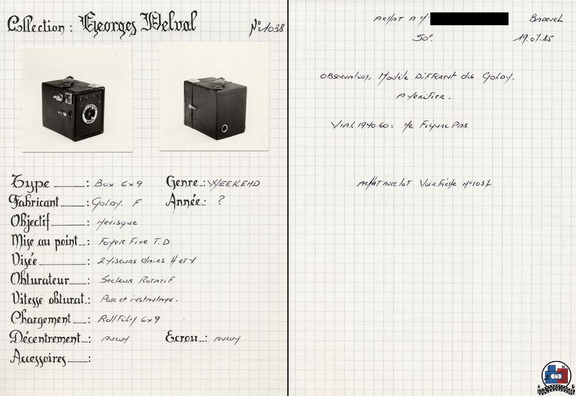 Collection : Georges Delval N° 1038
Type : Box 6x9 Genre : WEEKEND
Fabricant : Goldy. F Année : ?
Objectif : Ménisque
Mise au point : Foyer Fixe T.D
Visée : 2 Viseurs clairs H et V
Obturateur : Secteur Rotatif
Vitesse obturat. : Pose et instantané.
Chargement : Roll Film 6x9
Décentrement : Ecrou :
Accessoires :
Achat à M
50F. 19.07.85
Observation, Modèle Different du Goldy.
Achat avec lot Voir Fiche n° 1037